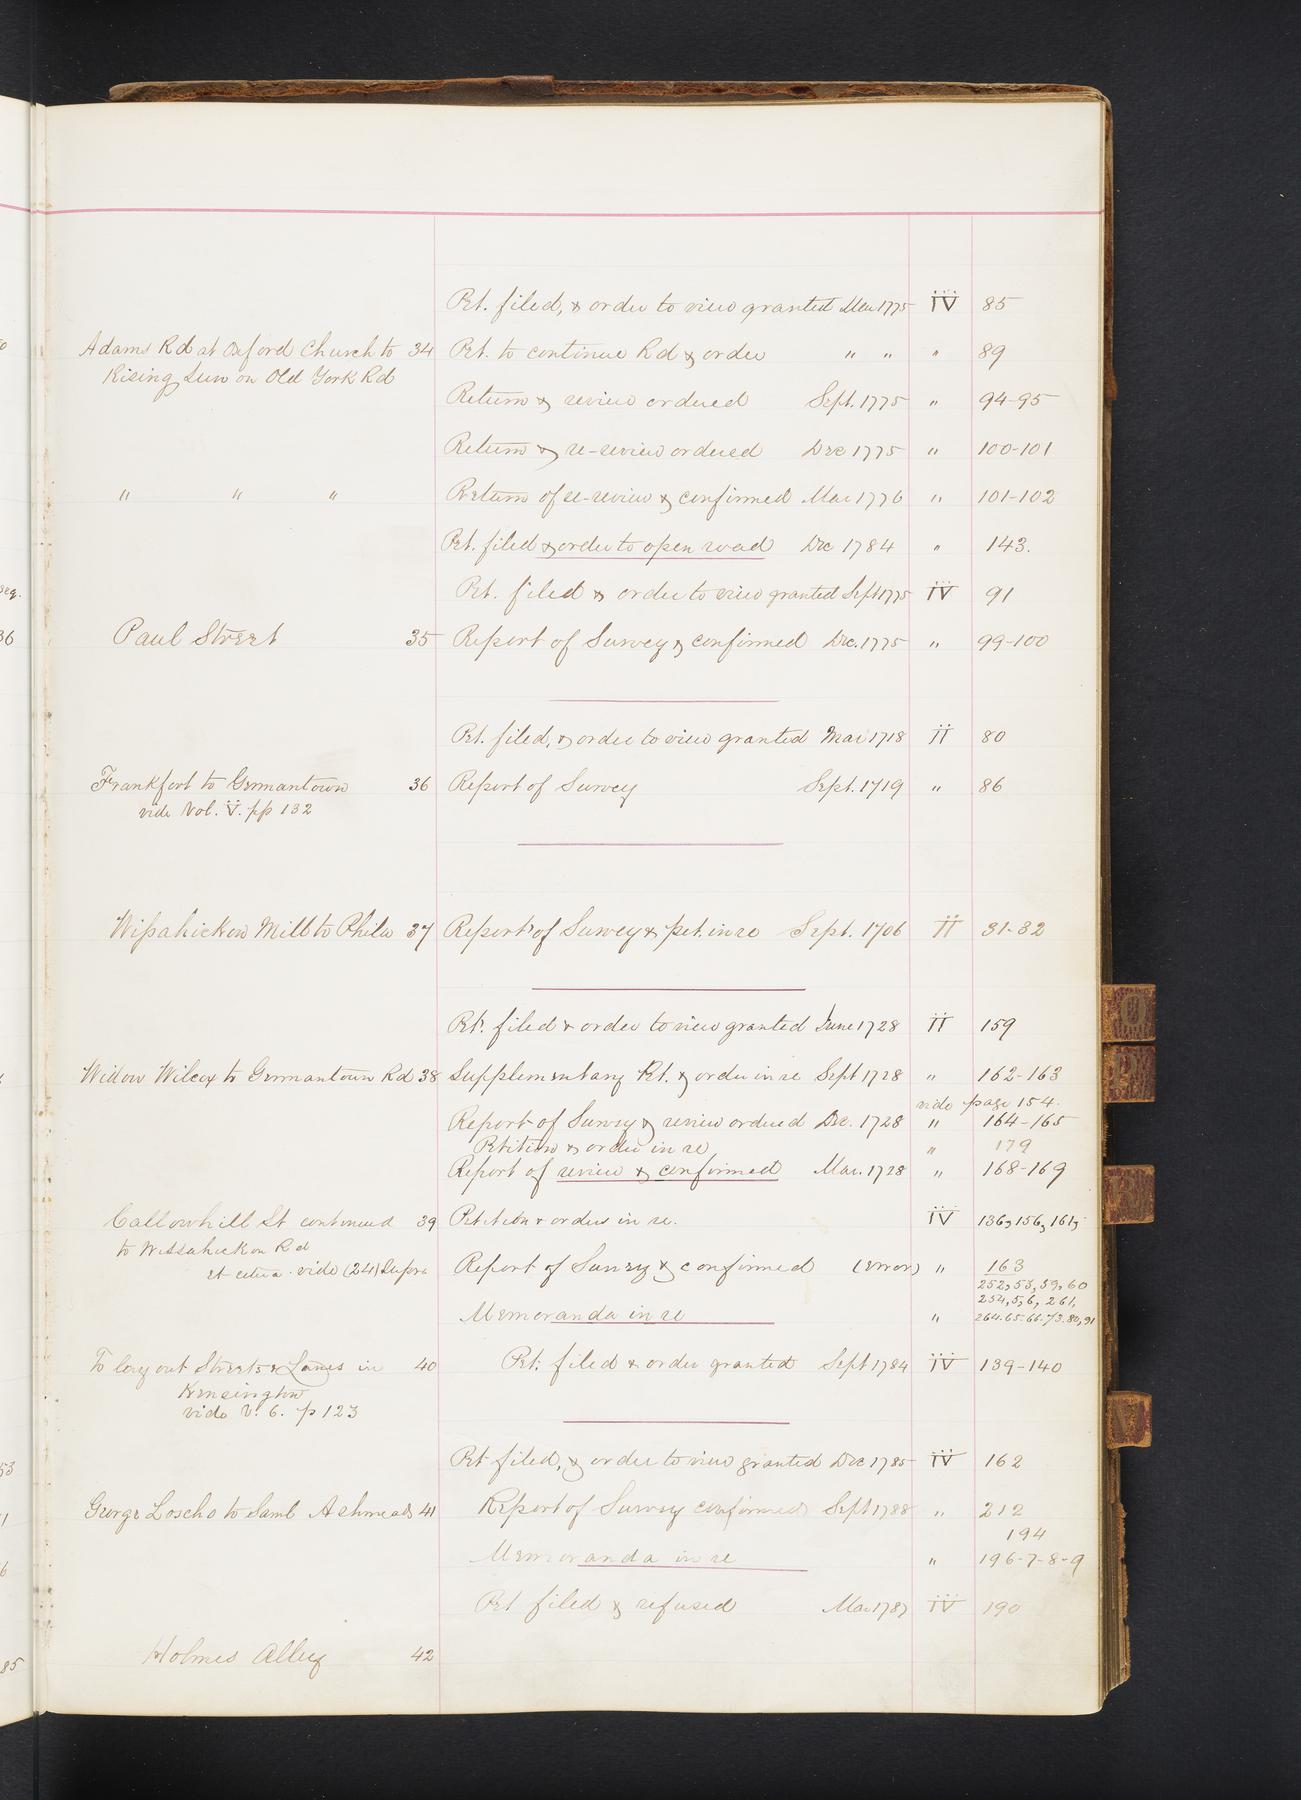 Pet. filed, & order to view granted Mar 1775 IV 85
Adams Rd at Oxford Church to 34 Pet. to continue Rd & order " " " 89
Rising Sun on Old York Rd
Return & review ordered Sept. 1775 " 94-95
Return & re-review ordered Dec 1775 " 100-101
" " " Return of re-review & confirmed Mar 1776 " 101-102
Pet. filed & order to open road Dec 1784 " 143.
Pet. filed & order to view granted Sept 1775 IV 91
Paul Street 35 Report of Survey & confirmed Dec. 1775 " 99-100
Pet. filed, & order to view granted Mar 1718 II 80
Frankfort to Germantown 36 Report of Survey Sept. 1719 " 86
vide Vol. V. pp 132
Wissahickon Mill to Phila 37 Report of Survey & pet. in re Sept. 1706 II 31-32
Pet. filed & order to view granted June 1728 II 159
Widow Wilcox to Germantown Rd 38 Supplementary Pet. & order in re Sept 1728 " 162-163
vide page 154.
Report of Survey & review ordered Dec. 1728 " 164-165
Petition & order in re " 179
Report of review & confirmed Mar. 1728 " 168-169
Callowhill St continued 39 Petition & orders in re. IV 136, 156, 161,
to Wissahickon Rd
et cetera vide (24) Supra Report of Survey & confirmed (error) " 163
252, 53, 59, 60
254, 5, 6, 261,
Memoranda in re " 264.65-66-73.80, 91
To lay out Streets & Lanes in 40 Pet. filed & order granted Sept 1784 IV 139-140
Kensington
vide V. 6. p 123
Pet filed, & order to view granted Dec 1785 IV 162
George Loscho to Saml Ashmeads 41 Report of Survey confirmed Sept 1788 " 212
194
Memoranda in re " 196-7-8-9
Pet filed & refused Mar 1787 IV 190
Holmes Alley 42